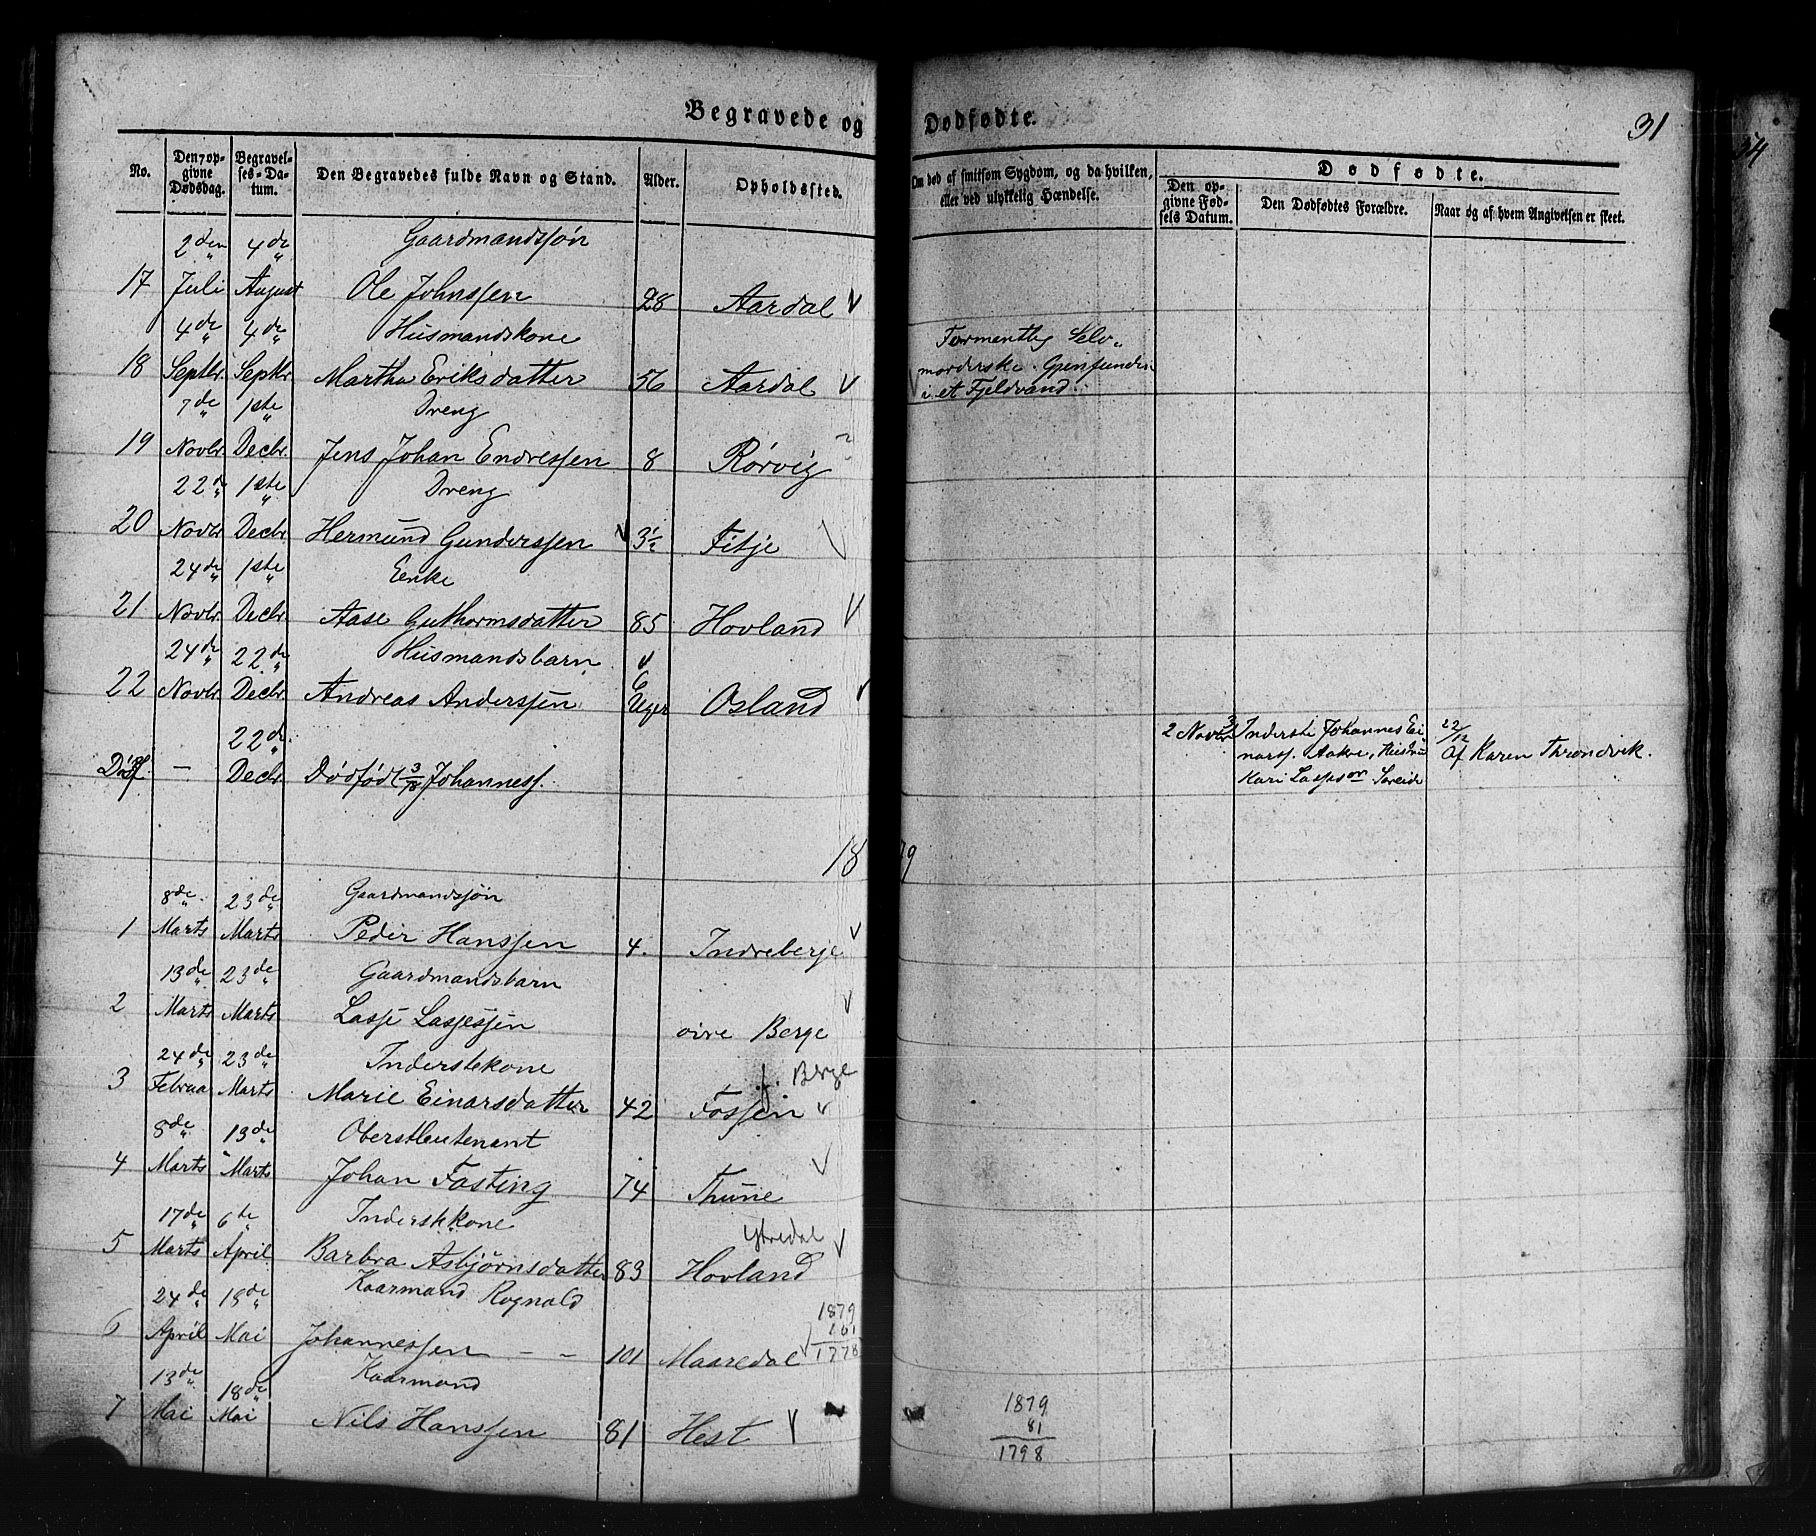 Begravede og Dødfødte.
31
No.
Den opgivne Dødsdag.
Begravelses-Datum.
Den Begravedes fulde Navn og Stand.
Alder.
Opholdssted.
Om død af smitsom Sygdom, og da hvilken, eller ved ulykkelig Hændelse.
Dødfødte.
Den opgivne Fødsels Datum.
Den Dødfødtes Forældre.
Naar og af hvem Angivelsen er skeet.
2den 4de Gaardmandssøn
17 Juli August Ole Johnssen 28 Aardal
4de 4de Husmandskone
18 Septbr. Septbr Martha Eriksdatter 56 Aardal
Formentlig Selv-
morderske. Gjenfunden
i et Fjeldvand.
7de 1ste Dreng
19 Novbr. Decbr. Jens Johan Endressen 8 Rørvig
22de 1ste Dreng
20 Novbr Decbr. Hermund Gunderssen 3½ Fitje
24de 1ste Enke
21 Novbr. Decbr. Aase Guthormsdatter 85 Hovland
24de 22de Husmandsbarn
22 Novbr. Decbr. Andreas Anderssen 6 Uger Osland
22de
Dødf — Decbr Dødfødt Johanness.
Inderste Johannes Ei-
narss. Aakre, Hustru
Kari Lassesdr Søreide
22/12
Af Karen Throndvik.
1879
8de 23de Gaardmandssøn
1 Marts Marts Peder Hanssen 4. Indreberge
13de 23de Gaardmandsbarn
2 Marts Marts Lasse Lassessen øvre Berge
24de 23de Inderstekone Berge
3 Februar Marts Marie Einarsdatter 42 Fossen
8de 13de Oberstleutenant
4 Marts Marts Johan Fasting 74 Thune
17de 6te Inderstekone Ytredal
5 Marts April Barbra Asbjørnsdatter 83 Hovland
24de 18de Kaarmand Rognald
6 April Mai Johannessen — — 101 Maaredal
1879
101
1778
13de 18de Kaarmand
7 Mai Mai Nils Hanssen 81 Hest
1879
81
1798